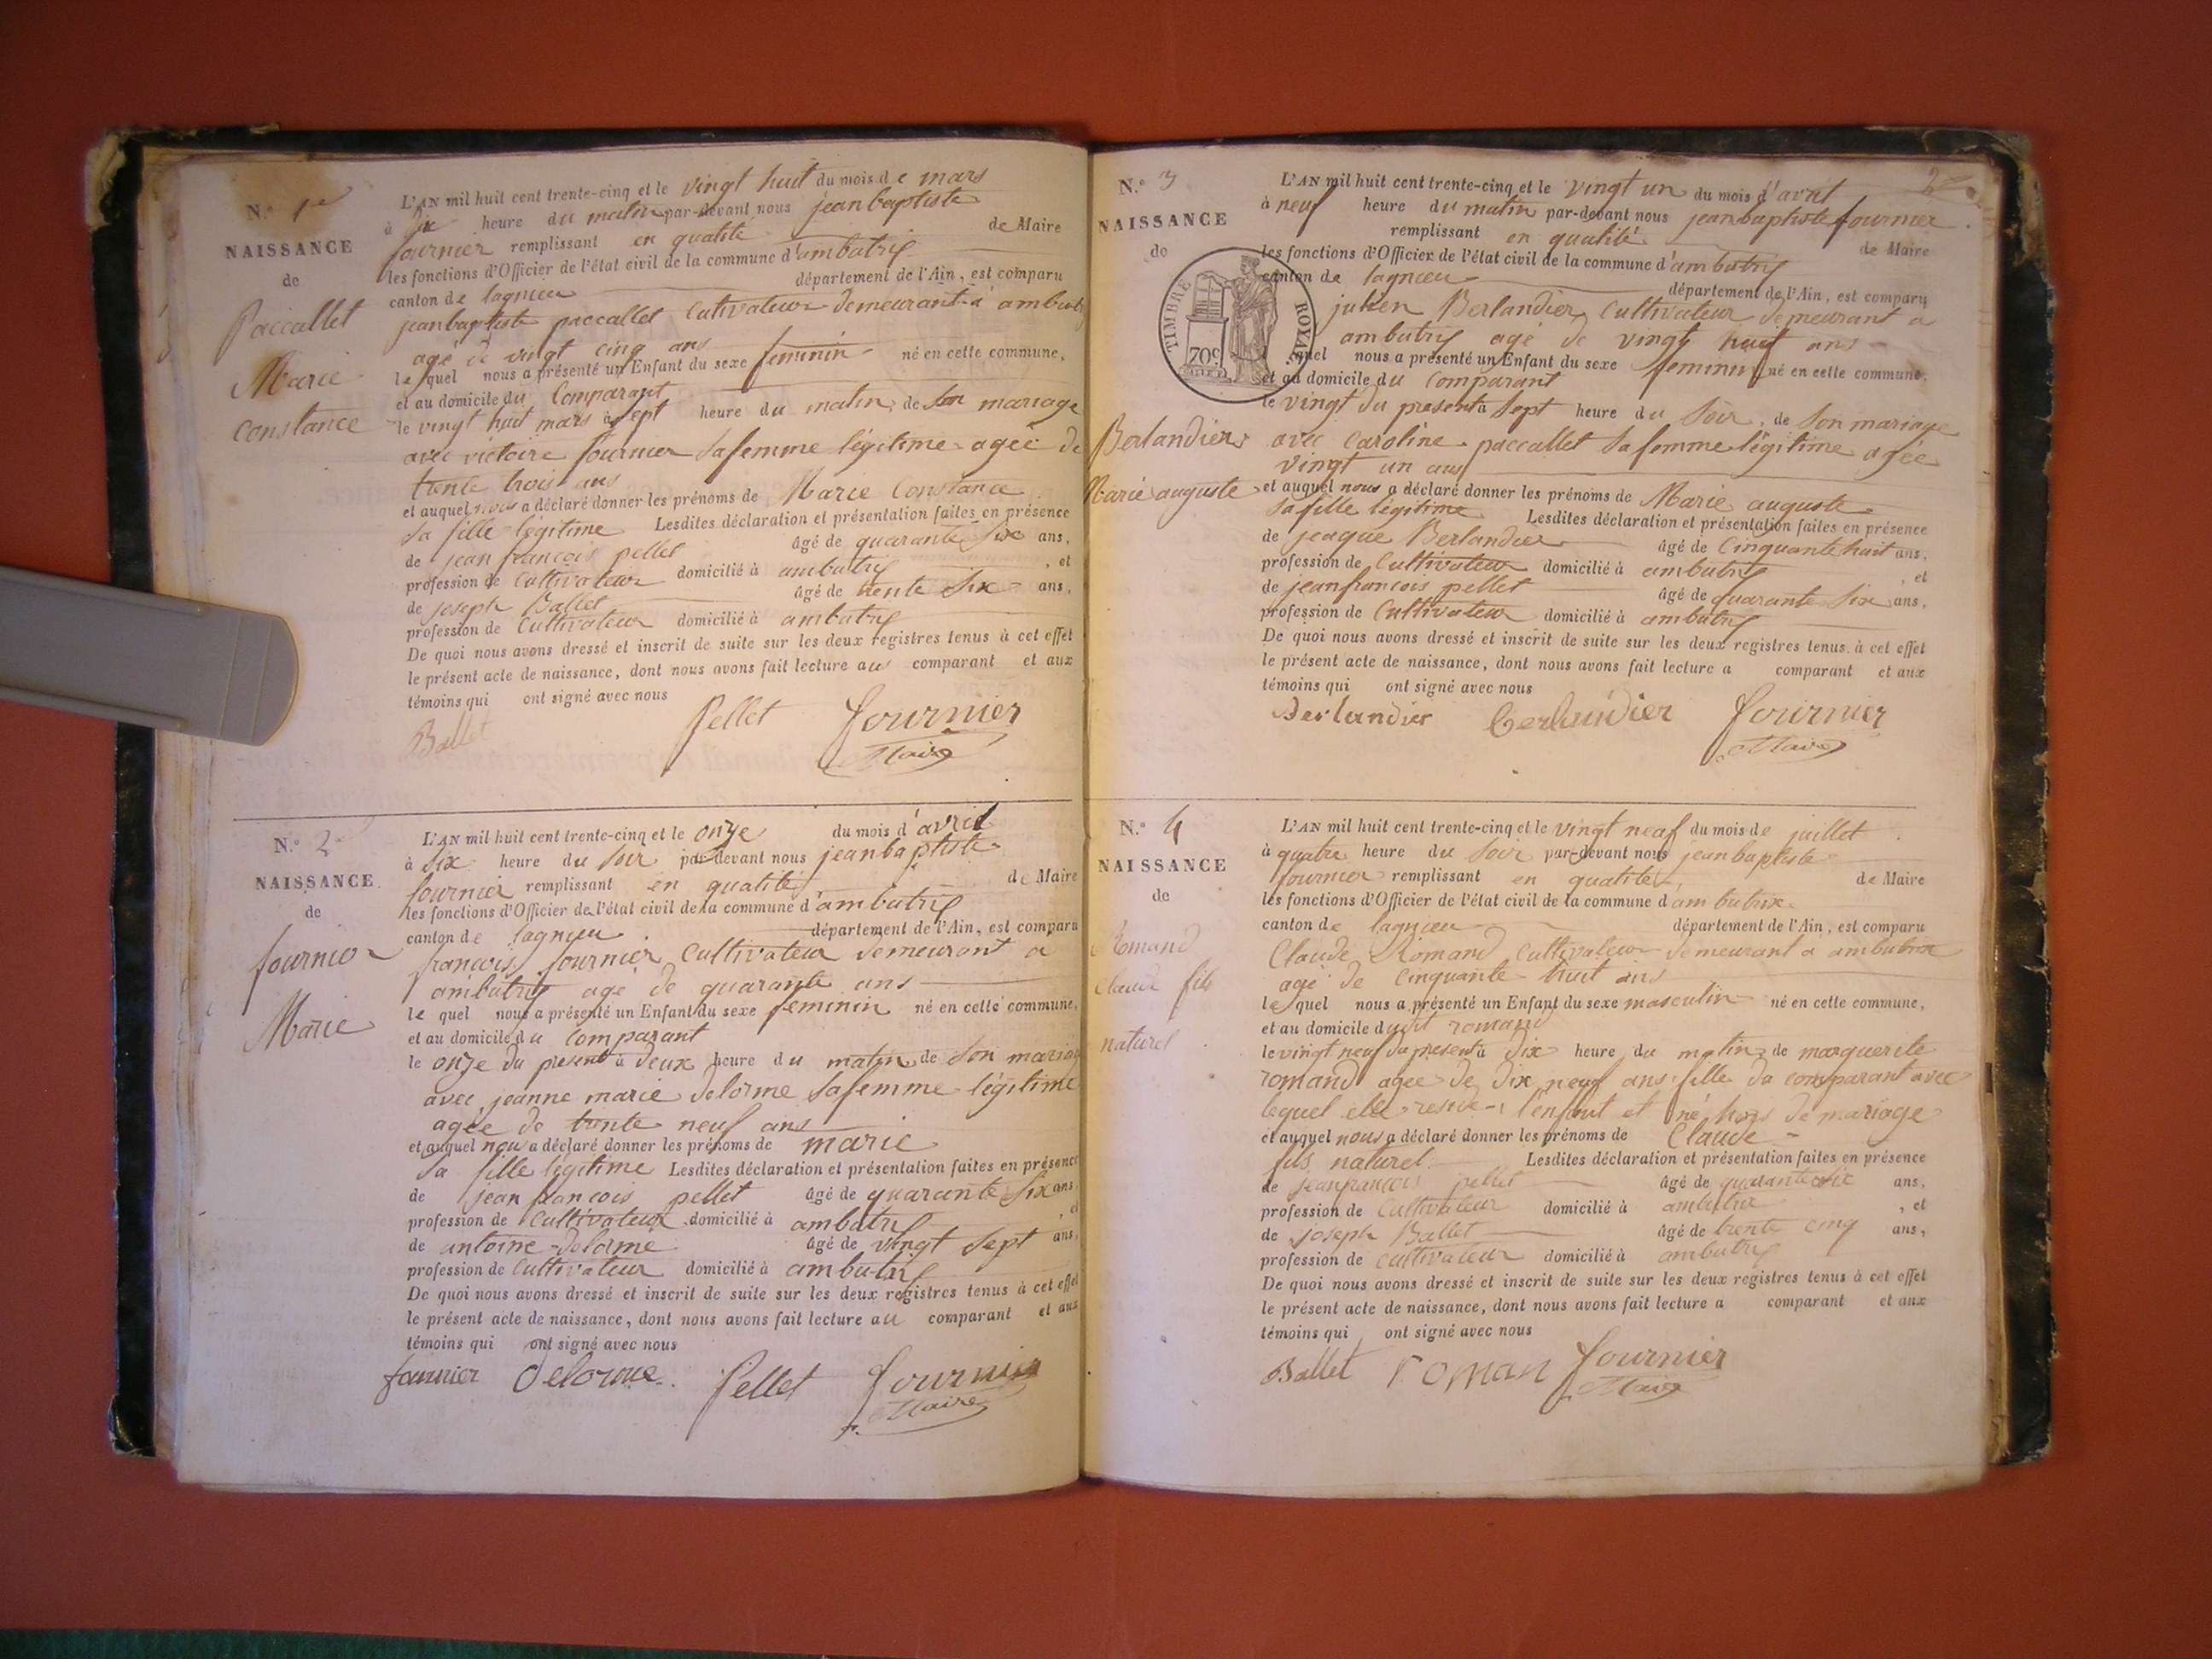 N.º 1er
NAISSANCE
de
Paccallet
Marie
Constance
L'AN mil huit cent trente-cinq et le vingt huit du mois de mars
à dix heure du matin par-devant nous jean baptiste
fournier remplissant en qualité de Maire
les fonctions d'Officier de l'état civil de la commune d'ambutrix
canton de lagnieu département de l'Ain, est comparu
jean baptiste paccallet Cultivateur demeurant a ambutrix
agé de vingt cinq ans
lequel nous a présenté un Enfant du sexe feminin né en cette commune,
et au domicile du Comparant
le vingt huit mars à sept heure du matin, de son mariage
avec victoire fournier sa femme légitime agée de
trente trois ans
et auquel nous a déclaré donner les prénoms de Marie Constance
sa fille légitime Lesdites déclaration et présentation faites en présence
de jean francois pellet âgé de quarante six ans,
profession de Cultivateur domicilié à ambutrix , et
de joseph Ballet âgé de trente six ans,
profession de Cultivateur domicilié à ambutrix
De quoi nous avons dressé et inscrit de suite sur les deux registres tenus à cet effet
le présent acte de naissance, dont nous avons fait lecture au comparant et aux
témoins qui ont signé avec nous
Ballet Pellet fournier
Maire
N.º 2
NAISSANCE
de
fournier
Marie
L'AN mil huit cent trente-cinq et le onze du mois d'avril
à six heure du soir par-devant nous jean baptiste
fournier remplissant en qualité de Maire
les fonctions d'Officier de l'état civil de la commune d'ambutrix
canton de lagnieu département de l'Ain, est comparu
francois fournier Cultivateur demeurant a
ambutrix agé de quarante ans
le quel nous a présenté un Enfant du sexe feminin né en cette commune,
et au domicile du comparant
le onze du present à deux heure du matin de son mariage
avec jeanne marie delorme sa femme légitime
agée de trente neuf ans
et auquel nous a déclaré donner les prénoms de marie
sa fille légitime Lesdites déclaration et présentation faites en présence
de jean francois pellet âgé de quarante six ans,
profession de Cultivateur domicilié à ambutrix , et
de antoine delorme âgé de vingt sept ans,
profession de Cultivateur domicilié à ambutrix
De quoi nous avons dressé et inscrit de suite sur les deux registres tenus à cet effet
le présent acte de naissance, dont nous avons fait lecture au comparant et aux
témoins qui ont signé avec nous
fournier delorme Pellet fournier
Maire
2
N.º 3
NAISSANCE
de
TIMBRE ROYAL
70c
Berlandier
Marie auguste
L'AN mil huit cent trente-cinq et le vingt un du mois d'avril
à neuf heure du matin par-devant nous jean baptiste fournier
remplissant en qualité de Maire
les fonctions d'Officier de l'état civil de la commune d'ambutrix
canton de lagnieu département de l'Ain, est comparu
julien Berlandier Cultivateur demeurant a
ambutrix agé de vingt huit ans
lequel nous a présenté un Enfant du sexe feminin né en cette commune,
et au domicile du comparant
le vingt du present à sept heure du soir, de son mariage
avec caroline paccallet sa femme légitime agée
vingt un ans
et auquel nous a déclaré donner les prénoms de Marie auguste
sa fille légitime Lesdites déclaration et présentation faites en présence
de jeaque Berlandier âgé de Cinquante huit ans,
profession de Cultivateur domicilié à ambutrix , et
de jean francois pellet âgé de quarante six ans,
profession de Cultivateur domicilié à ambutrix
De quoi nous avons dressé et inscrit de suite sur les deux registres tenus à cet effet
le présent acte de naissance, dont nous avons fait lecture a comparant et aux
témoins qui ont signé avec nous
Berlandier berlandier fournier
Maire
N.º 4
NAISSANCE
de
Romand
Claude fils
naturel
L'AN mil huit cent trente-cinq et le vingt neuf du mois de juillet
à quatre heure du soir par-devant nous jean baptiste
fournier remplissant en qualité de Maire
les fonctions d'Officier de l'état civil de la commune d'ambutrix
canton de lagnieu département de l'Ain, est comparu
Claude Romand Cultivateur demeurant a ambutrix
agé de cinquante huit ans
le quel nous a présenté un Enfant du sexe masculin né en cette commune,
et au domicile dudit romand
le vingt neuf du present à dix heure du matin de marguerite
romand agee de dix neuf ans fille du comparant avec
lequel elle reside l'enfant et né hors de mariage
et auquel nous a déclaré donner les prénoms de Claude
fils naturel Lesdites déclaration et présentation faites en présence
de jean francois pellet âgé de quarante six ans,
profession de Cultivateur domicilié à ambutrix , et
de joseph Ballet âgé de trente cinq ans,
profession de Cultivateur domicilié à ambutrix
De quoi nous avons dressé et inscrit de suite sur les deux registres tenus à cet effet
le présent acte de naissance, dont nous avons fait lecture a comparant et aux
témoins qui ont signé avec nous
Ballet roman fournier
Maire